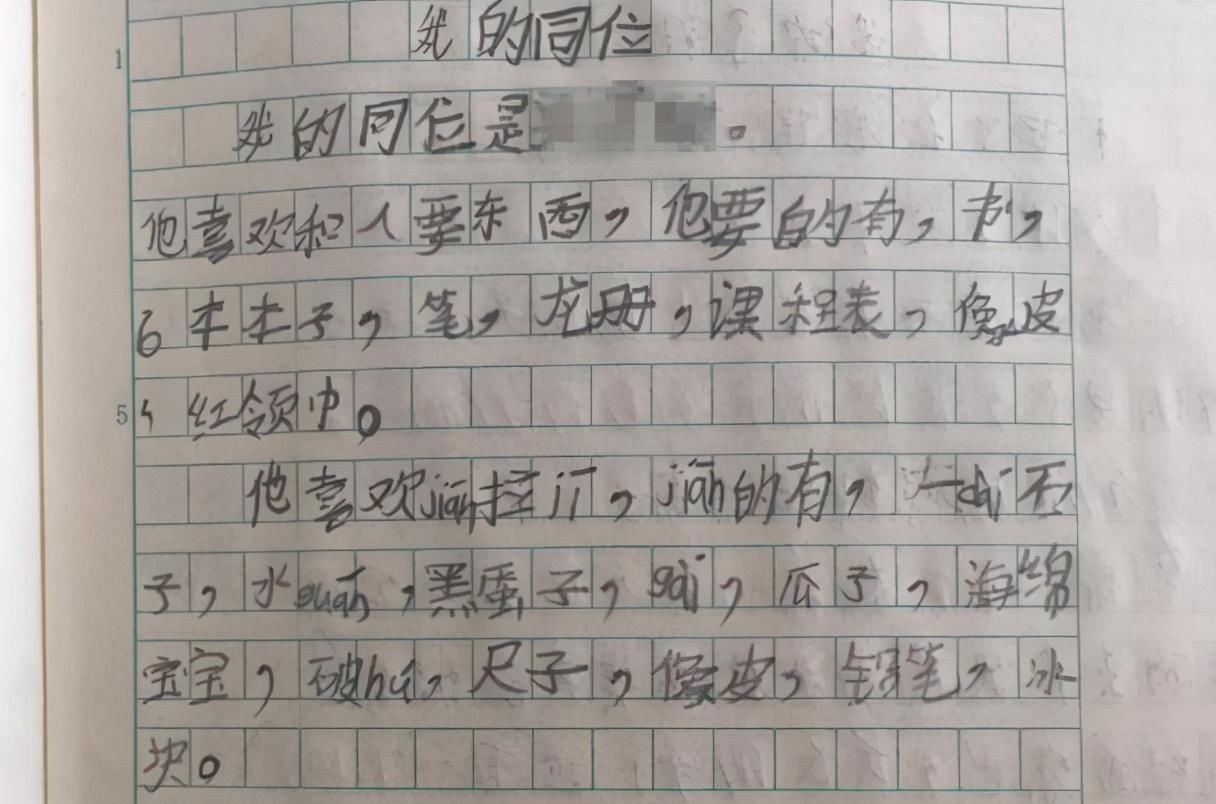 我的同位
1
我的同位是 。
他喜欢和人要东西，他要的有，书，
6本本子，笔，龙册，课程表，像皮
5 、红领巾。
他喜欢jiǎn拉jī，jiǎn的有，一dài石
子，水guǎn，黑蛋子，gài，瓜子，海绵
宝宝，破huà，尺子，像皮，铅笔，冰
块。